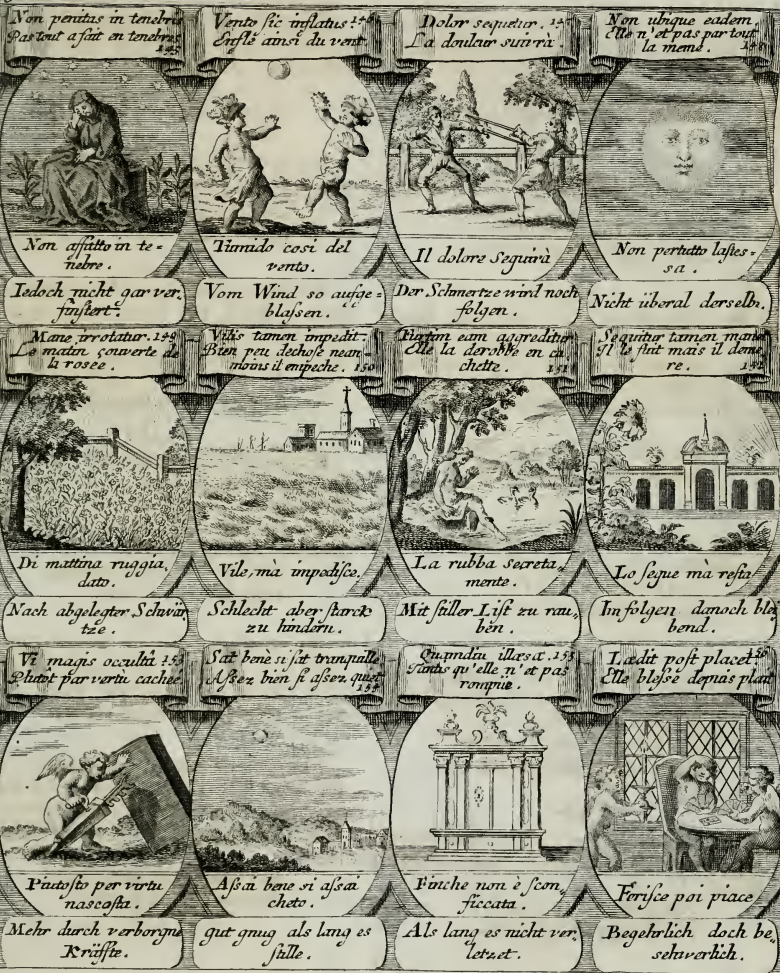 Non penitus in tenebris
Pas tout a fait en tenebres
145
Non affatto in te=
nebre.
Iedoch nicht gar ver,
finstert.
Vento sic inflatus 146
Enflé ainsi du vent
Tumido cosi del
vento.
Vom Wind so aufge=
blassen.
Dolor sequetur. 147
La douleur suivrà.
Il dolore Seguirà
Der Schmertze wird noch
folgen.
Non ubique eadem,
Elle n'et pas par tout
la meme. 148
Non pertutto lastes=
sa.
Nicht überal derselb.
Mane irrotatur. 149
Le matin couverte de
la rosee.
Di mattina ruggia,
dato.
Nach abgelegter Schwär
tze.
Vilis tamen impedit.
Bien peu dechose nean=
moins il empeche. 150
Vile, mà impedisce.
Schlecht aber starck
zu hindern.
Furtim eam aggreditur
Elle la derobbe en ca
chette. 151
La rubba secreta,
mente.
Mit stiller List zu rau=
ben.
Sequitur tamen manet
Il le suit mais il deme
re. 152
Lo segue mà resta
Im folgen danoch blei
bend.
Vi magis occultâ 153
Plutot par vertu cachée
Piutosto per virtu
nascosta.
Mehr durch verborgne
Kräffte.
Sat benè si sat tranquille
Assez bien si assez quiet
154
Assai bene si assai
cheto.
gut gnug als lang es
stille.
Quamdiu illæsæ. 155
Tantis qu'elle n'et pas
rompue.
Finche non è scon,
ficcata.
Als lang es nicht ver,
letzet.
Lædit post placet. 156
Elle blesse depuis plait
Ferisce poi piace
Begehrlich doch be,
schwerlich.